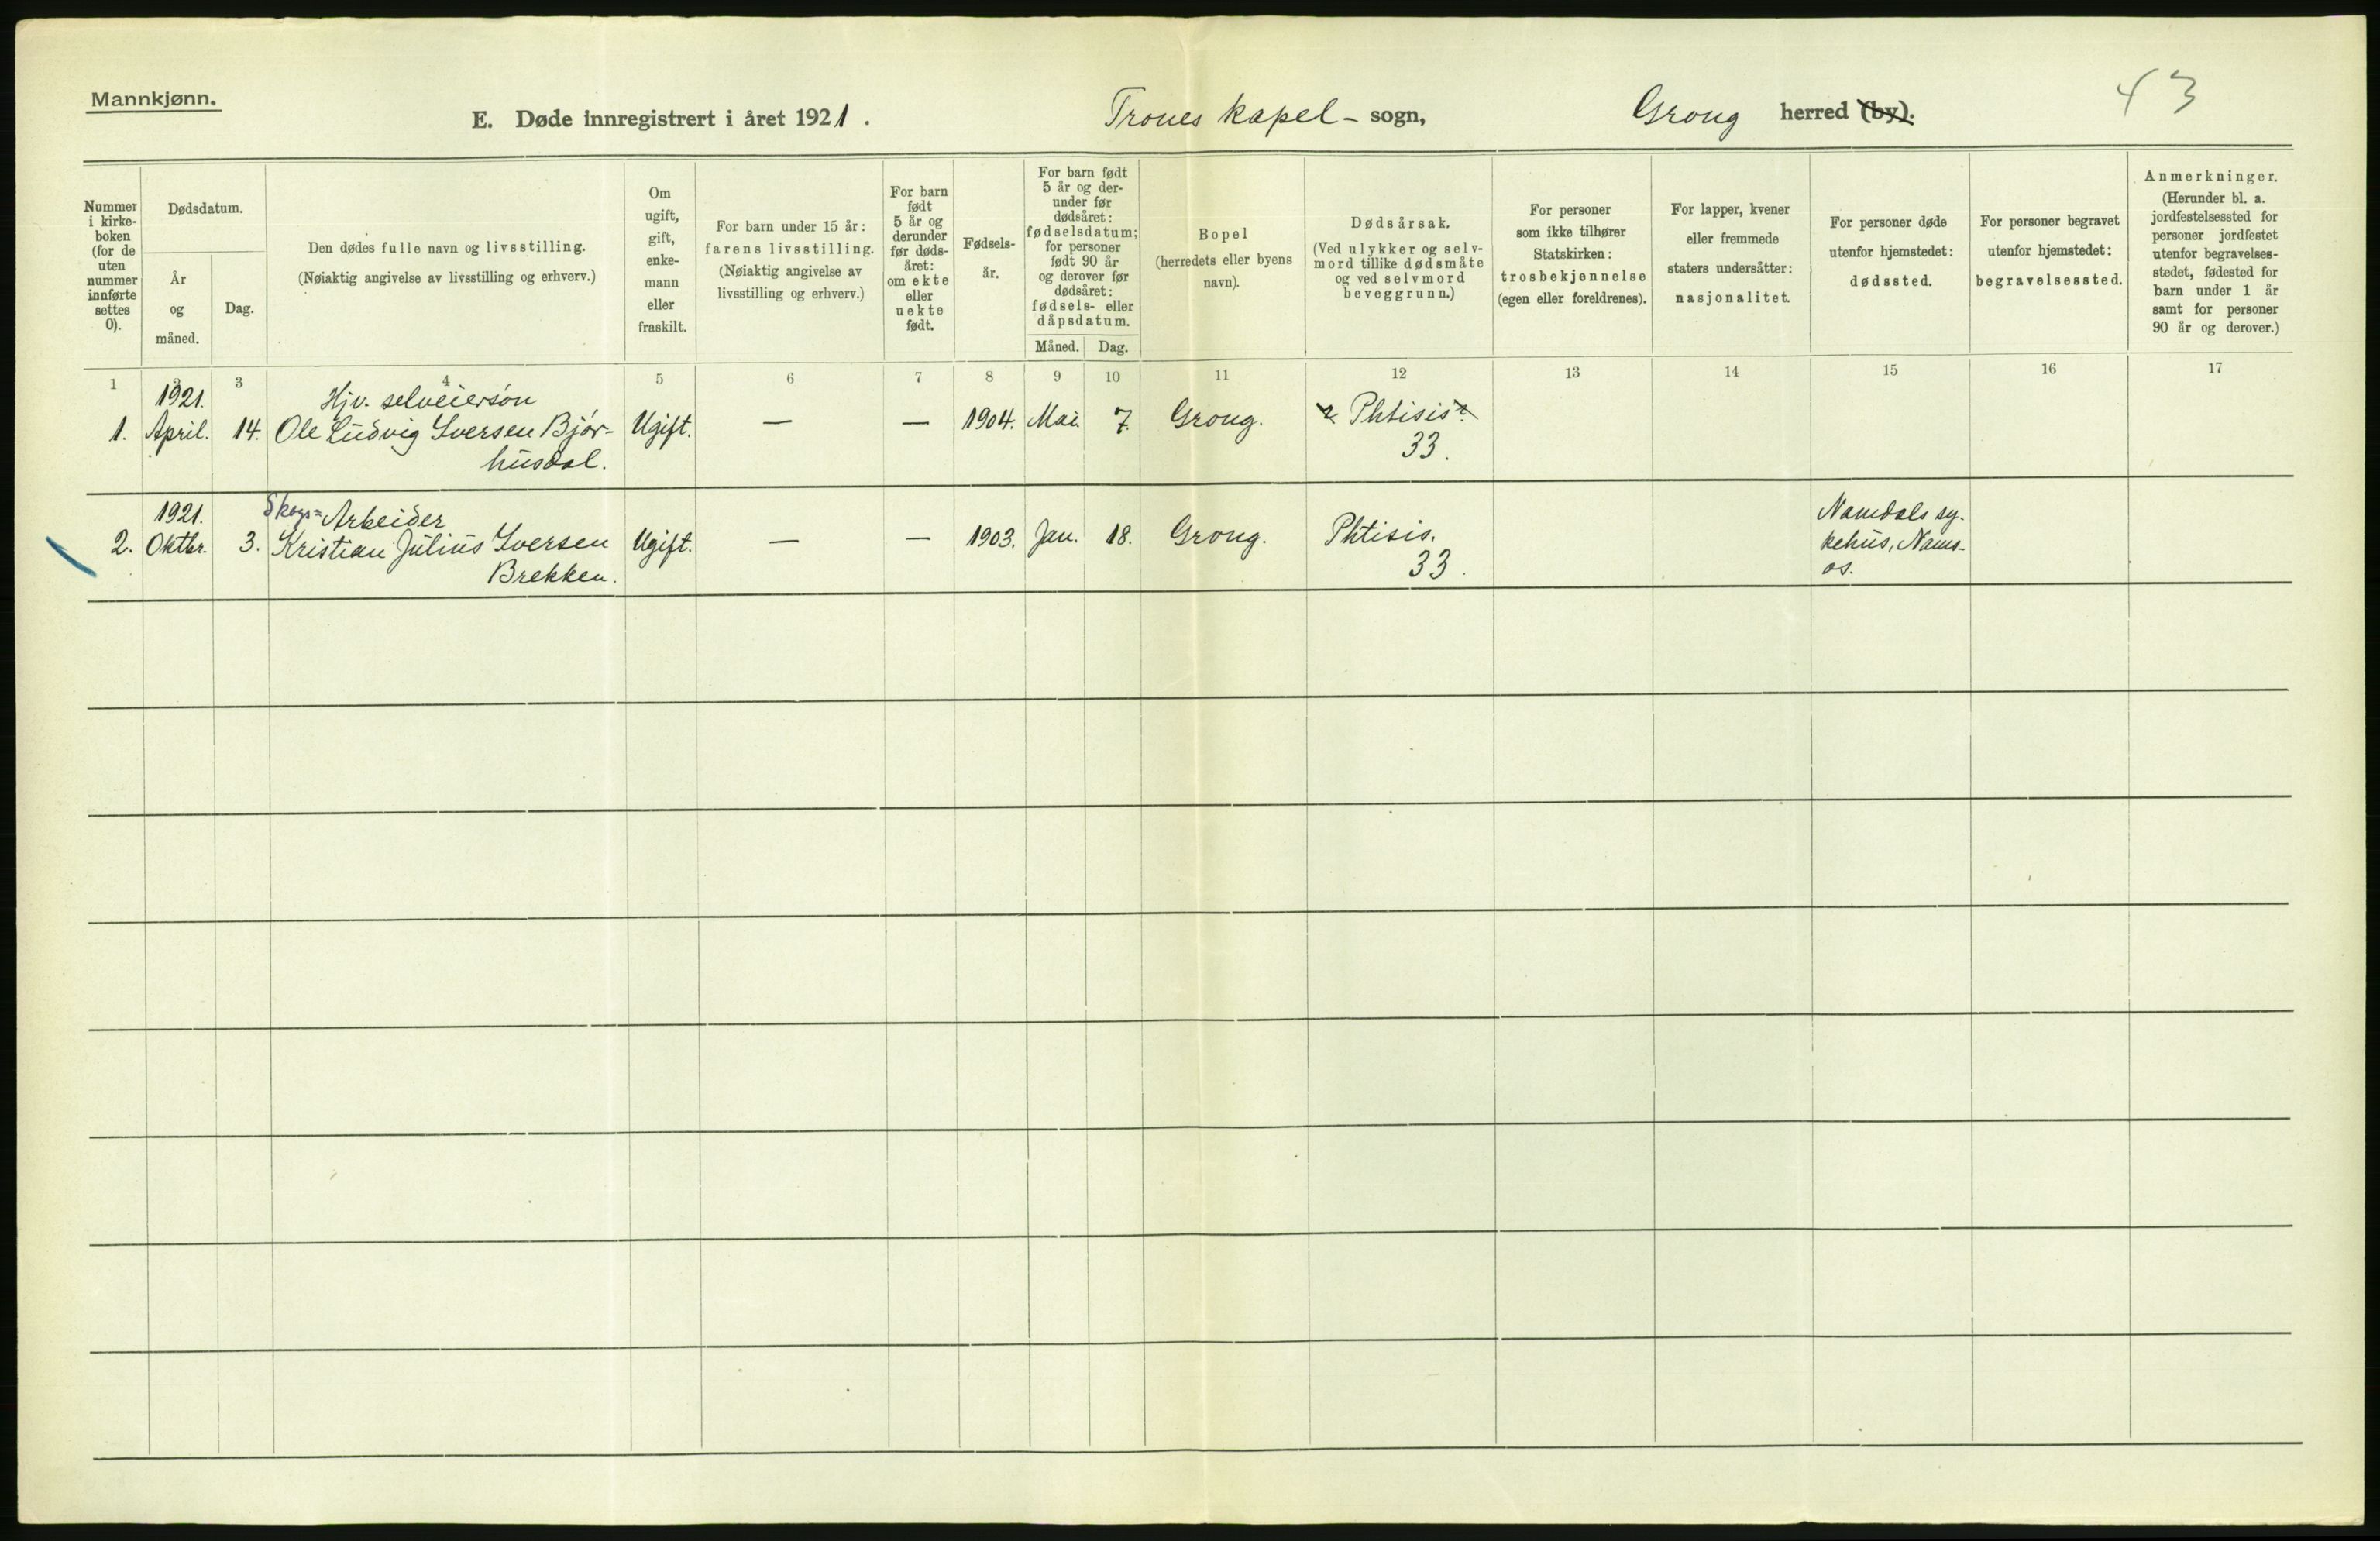 Mannkjønn.
E. Døde innregistrert i året 1921.
Trones kapel- sogn,
Grong herred (by).
43
Nummer
i kirke-
boken
(for de
uten
nummer
innførte
settes
0).
Dødsdatum.
År
og
måned.
Dag.
Den dødes fulle navn og livsstilling.
(Nøiaktig angivelse av livsstilling og erhverv.)
Om
ugift,
gift,
enke-
mann
eller
fraskilt.
For barn under 15 år:
farens livsstilling.
(Nøiaktig angivelse av
livsstilling og erhverv.)
For barn
født
5 år og
derunder
før døds-
året:
om ekte
eller
uekte
født.
Fødsels-
år.
For barn født
5 år og der-
under før
dødsåret:
fødselsdatum;
for personer
født 90 år
og derover før
dødsåret:
fødsels- eller
dåpsdatum.
Måned.
Dag.
Bopel
(herredets eller byens
navn).
Dødsårsak.
(Ved ulykker og selv-
mord tillike dødsmåte
og ved selvmord
beveggrunn.)
For personer
som ikke tilhører
Statskirken:
trosbekjennelse
(egen eller foreldrenes).
For lapper, kvener
eller fremmede
staters undersåtter:
nasjonalitet.
For personer døde
utenfor hjemstedet:
dødssted.
For personer begravet
utenfor hjemstedet:
begravelsessted.
Anmerkninger.
(Herunder bl. a.
jordfestelsessted for
personer jordfestet
utenfor begravelses-
stedet, fødested for
barn under 1 år
samt for personer
90 år og derover.)
1 2 3 4 5 6 7 8 9 10 11 12 13 14 15 16 17
1921. Hjv. selveiersøn
1. April. 14. Ole Ludvig Iversen Bjør- Ugift. — — 1904. Mai. 7. Grong. Phtisis?
husdal. 33.
1921. Skogs= Arbeider Namdals sy-
2. Oktbr. 3. Kristian Julius Iversen Ugift. — — 1903. Jan. 18. Grong. Phtisis. kehus, Nams-
Brekken. 33. os.